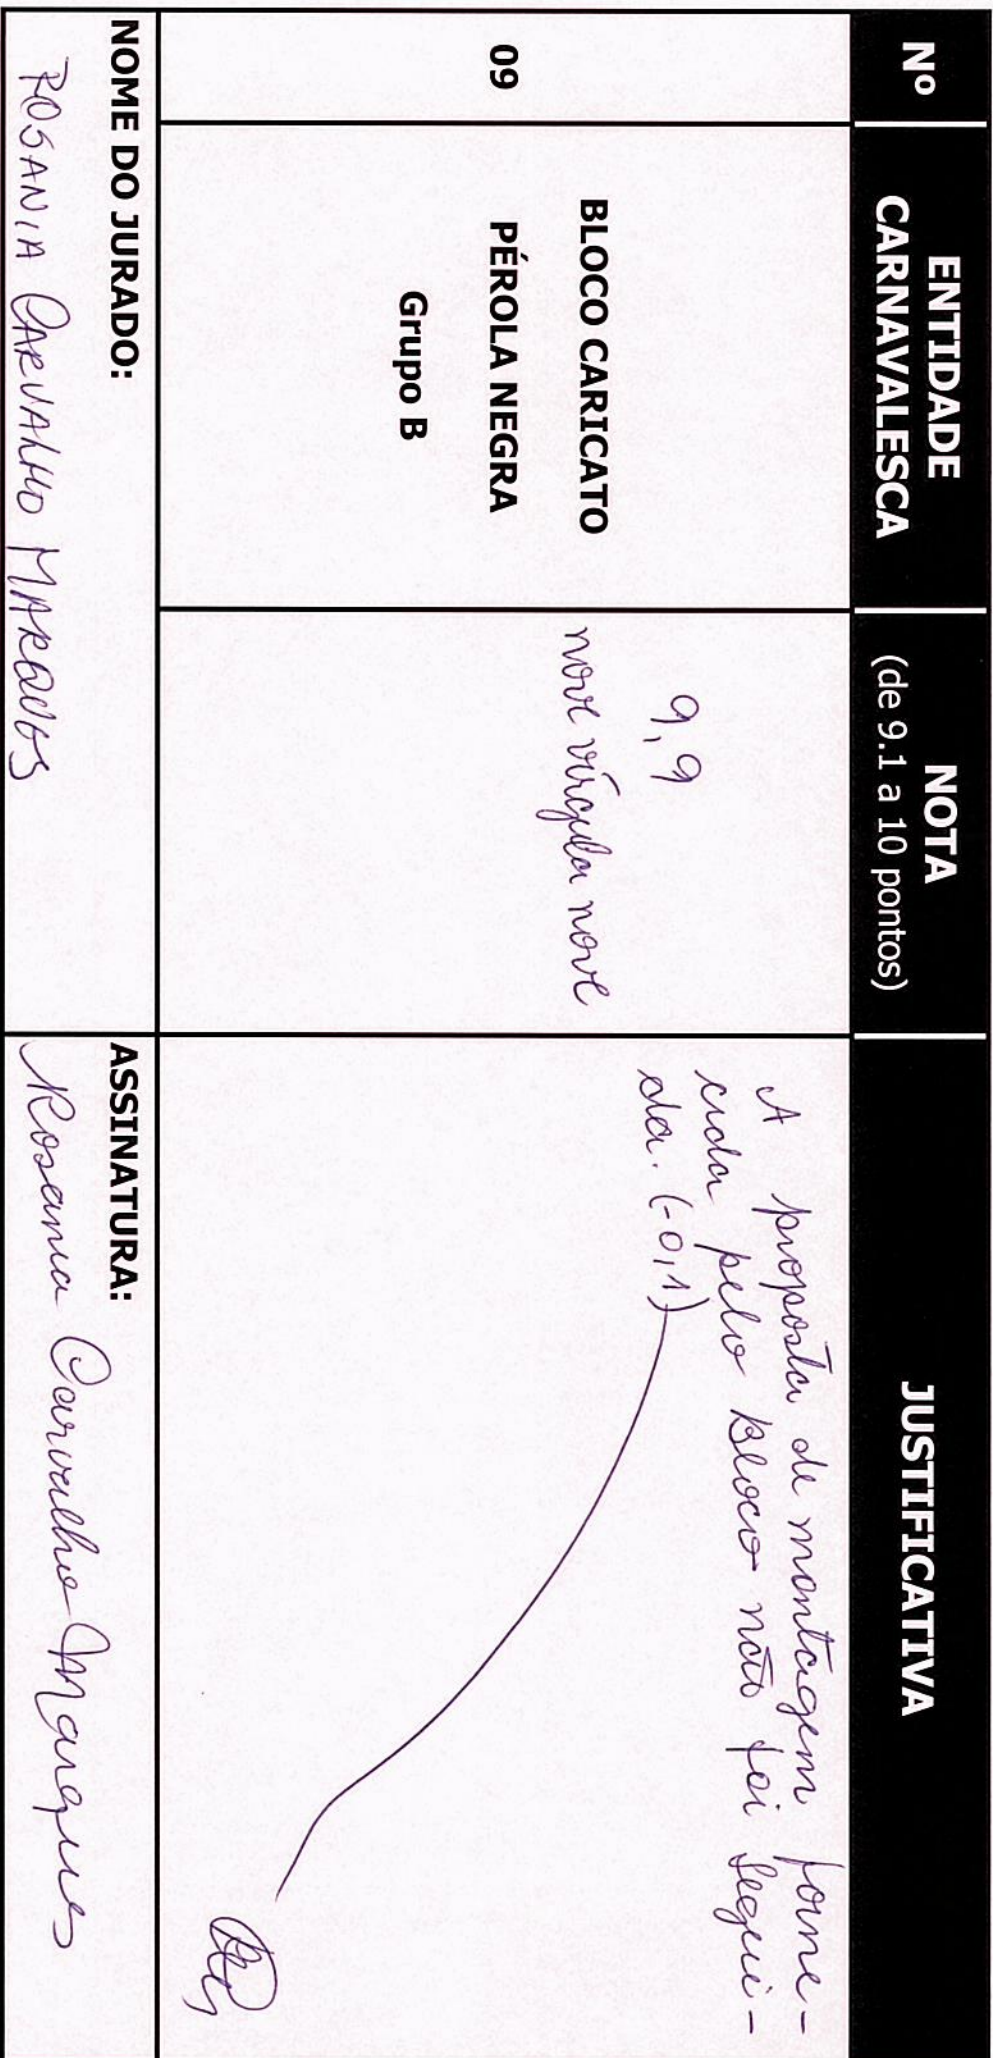 Nº
ENTIDADE
CARNAVALESCA
NOTA
(de 9.1 a 10 pontos)
JUSTIFICATIVA
09
BLOCO CARICATO
PÉROLA NEGRA
Grupo B
9,9
nove vírgula nove
A proposta de montagem forne-
cida pelo Bloco não foi segui-
da. (-0,1)
NOME DO JURADO:
ROSANIA CARVALHO MARQUES
ASSINATURA:
Rosania Carvalho Marques